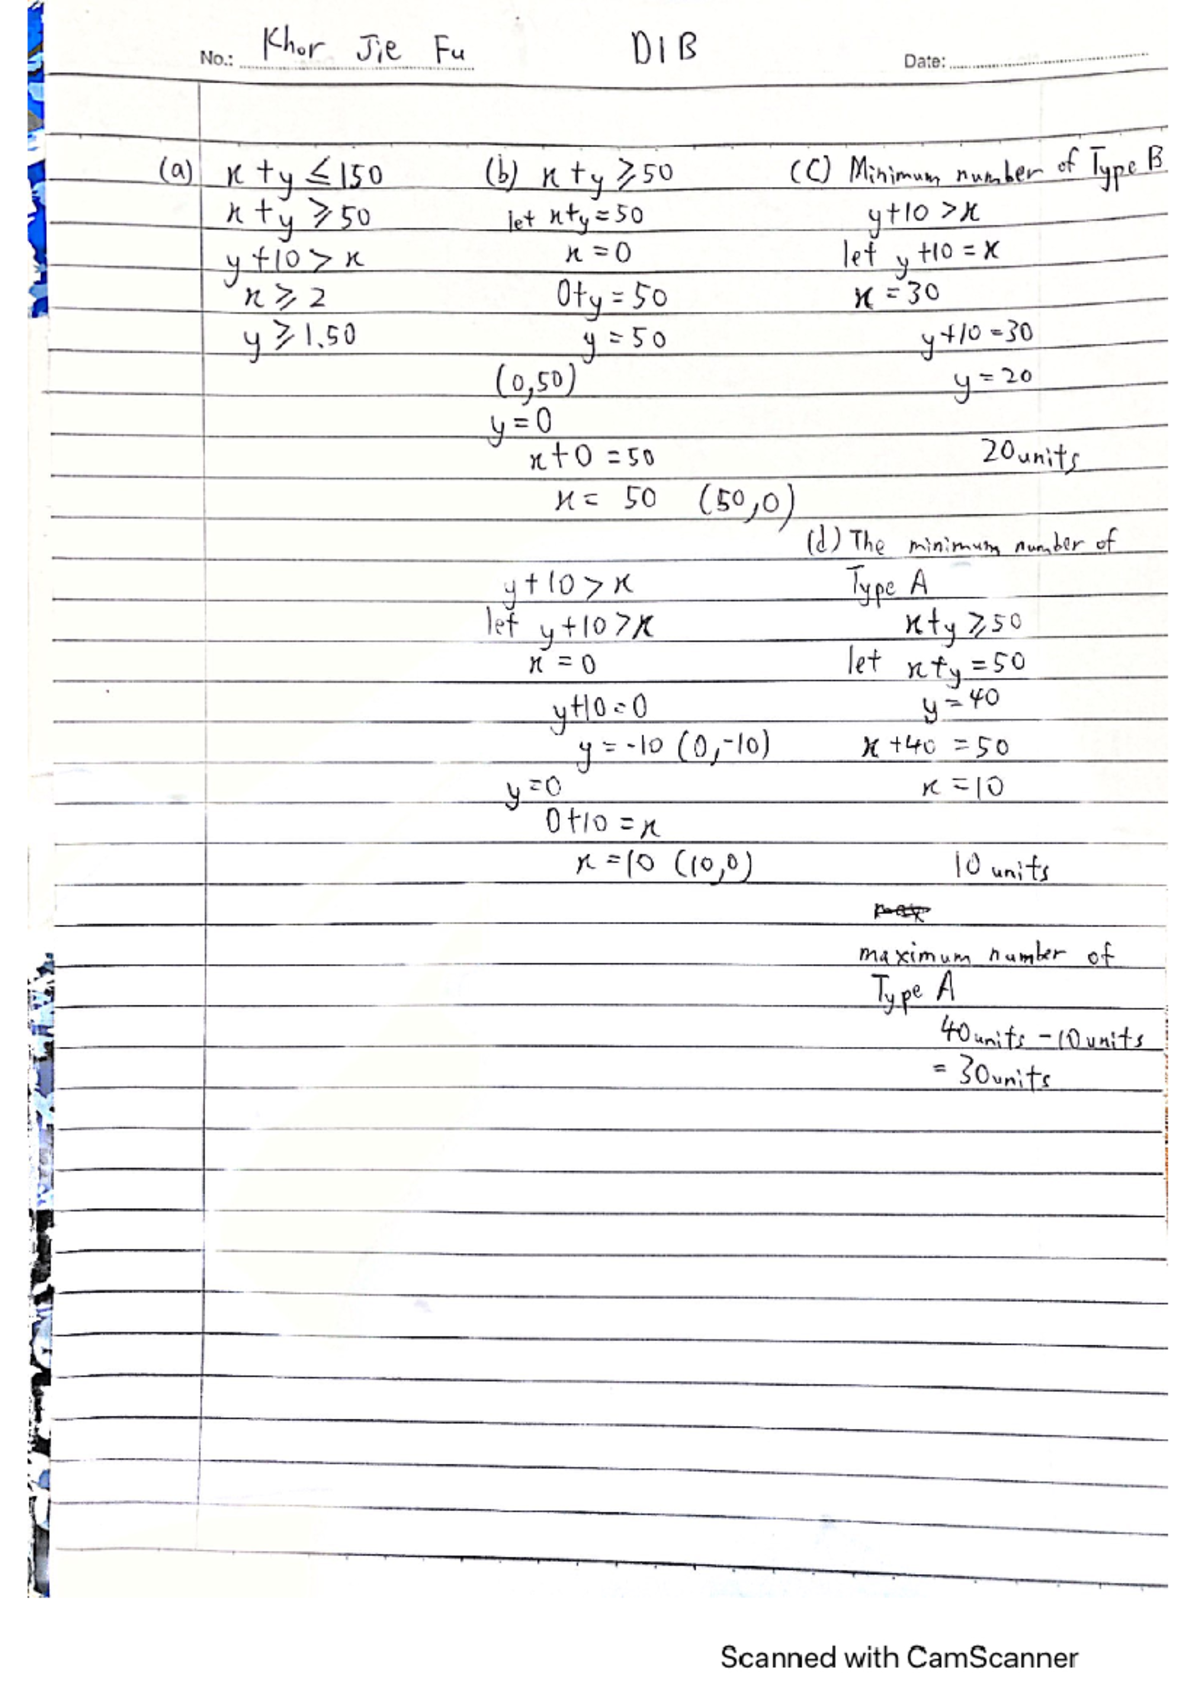 No.: Khor Jie Fu D1B Date:
(a) x+y ≤ 150
x+y ≥ 50
y+10 > x
x ≥ 2
y ≥ 1.50
(b) x+y ≥ 50
let x+y = 50
x = 0
0+y = 50
y = 50
(0,50)
y = 0
x+0 = 50
x = 50 (50,0)
y+10 > x
let y+10 > x
x = 0
y+10 = 0
y = -10 (0,-10)
y = 0
0+10 = x
x = 10 (10,0)
(C) Minimum number of Type B
y+10 > x
let y+10 = x
x = 30
y+10 = 30
y = 20
20 units
(d) The minimum number of
Type A
x+y ≥ 50
let x+y = 50
y = 40
x+40 = 50
x = 10
10 units
maximum number of
Type A
40 units - 10 units
= 30 units
Scanned with CamScanner